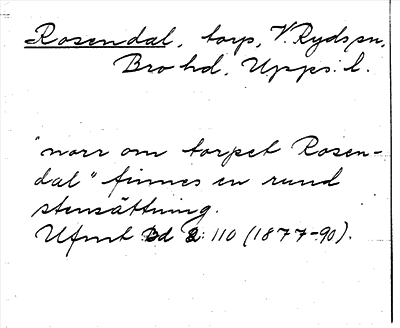 Rosendal, torp, V. Ryds sn,
Bro hd, Upps. l.
"norr om torpet Rosen-
dal" finnes en rund
stensättning.
Ufmt Bd 2: 110 (1877-90).